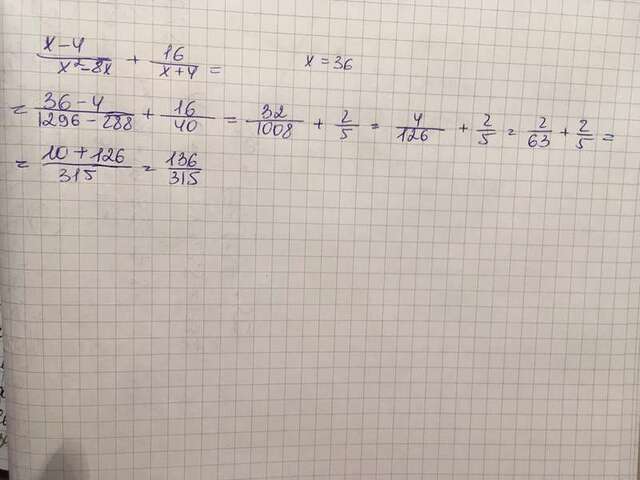 x-4/x²-8x + 16/x+4 = x = 36
= 36-4/1296-288 + 16/40 = 32/1008 + 2/5 = 4/126 + 2/5 = 2/63 + 2/5 =
= 10+126/315 = 136/315